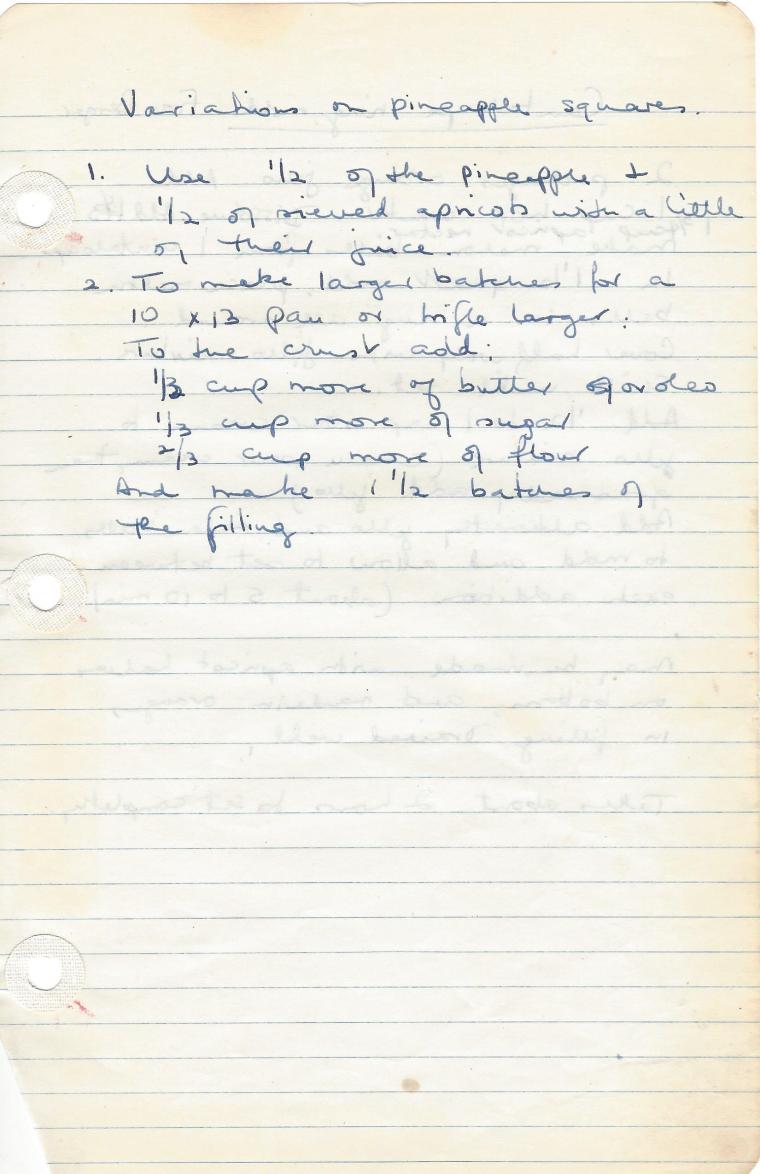 Variations on pineapple squares.
1. Use 1/2 of the pineapple +
1/2 of sieved apricots with a little
of their juice.
2. To make larger batches for a
10 x 13 pan or trifle larger:
To the crust add:
1/3 cup more of butter or oleo
1/3 cup more of sugar
2/3 cup more of flour
And make 1 1/2 batches of
the filling.